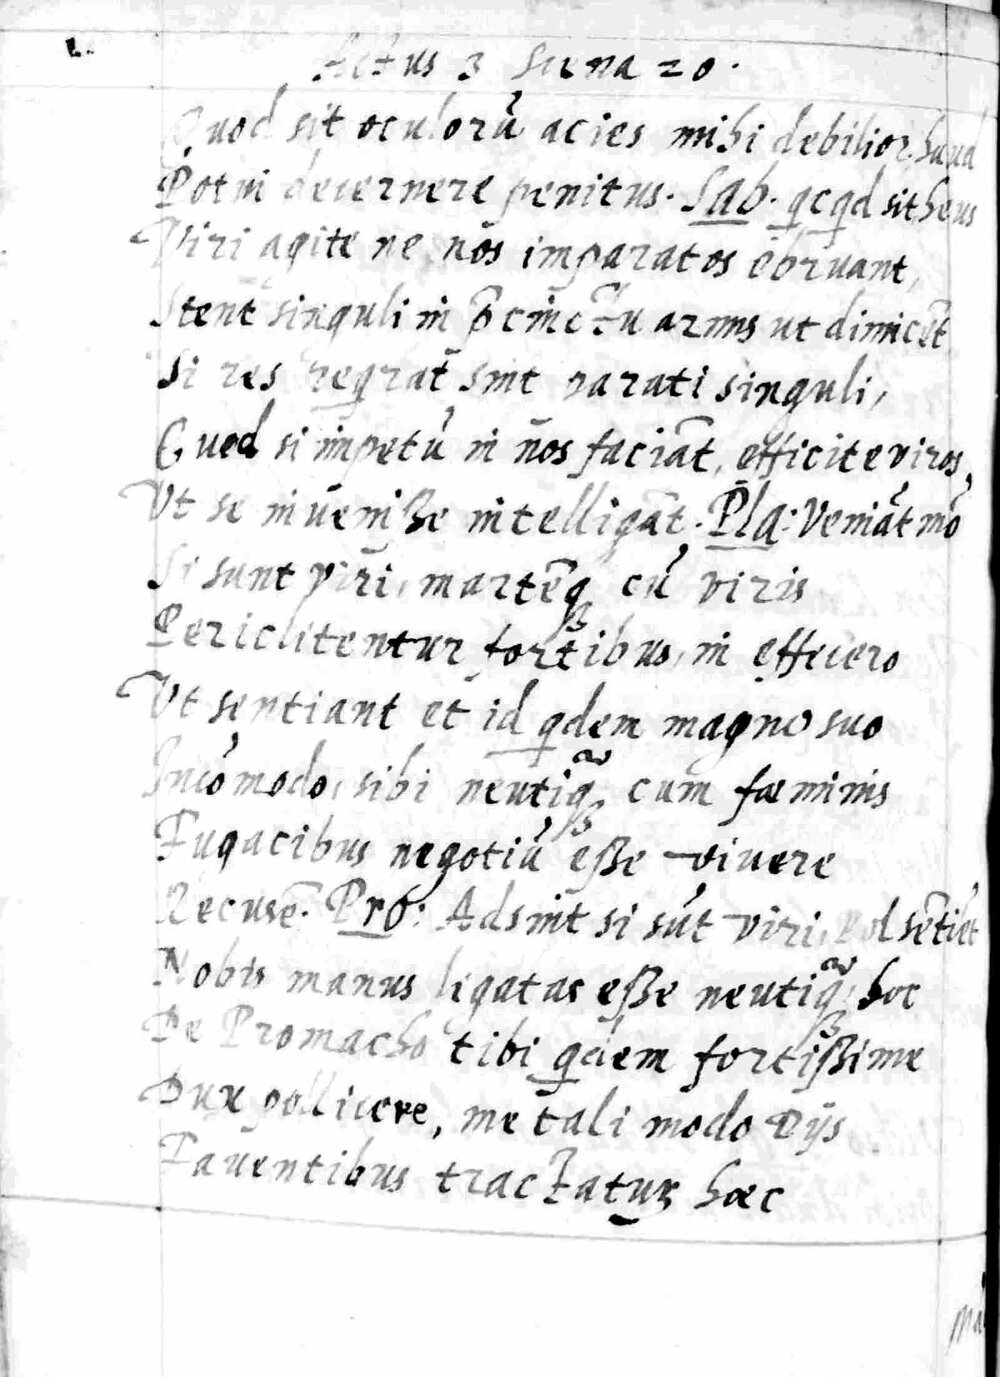 Actus 3 Scena 20.
Quod sit oculorū acies mihi debilior. haud
Potui decernere penitus. Sab. qcqd sit heus
Viri agite ne nos imparatos obruant,
Stent singuli in p̄cinctu armis ut dimicēt
Si res reqrat sint parati singuli,
Quod si impetū in nos faciāt, efficite viros,
Ut se inueniße intelligāt. Pla: Veniāt mō
Si sunt viri, martēq cū viris
Periclitentur fortibus, ni effecero
Ut sentiant et id qdem magno suo
Incōmodo, sibi neutiq̄, cum fœminis
Fugacibus negotiū eße viuere
Recusē. Pro: Adsint si sūt viri, Pol sētiēt
Nobis manus ligatas eße neutiq̄, hoc
De Promacho tibi qdem fortißime
Dux pollicere, me tali modo Dijs
Fauentibus tractatur hæc